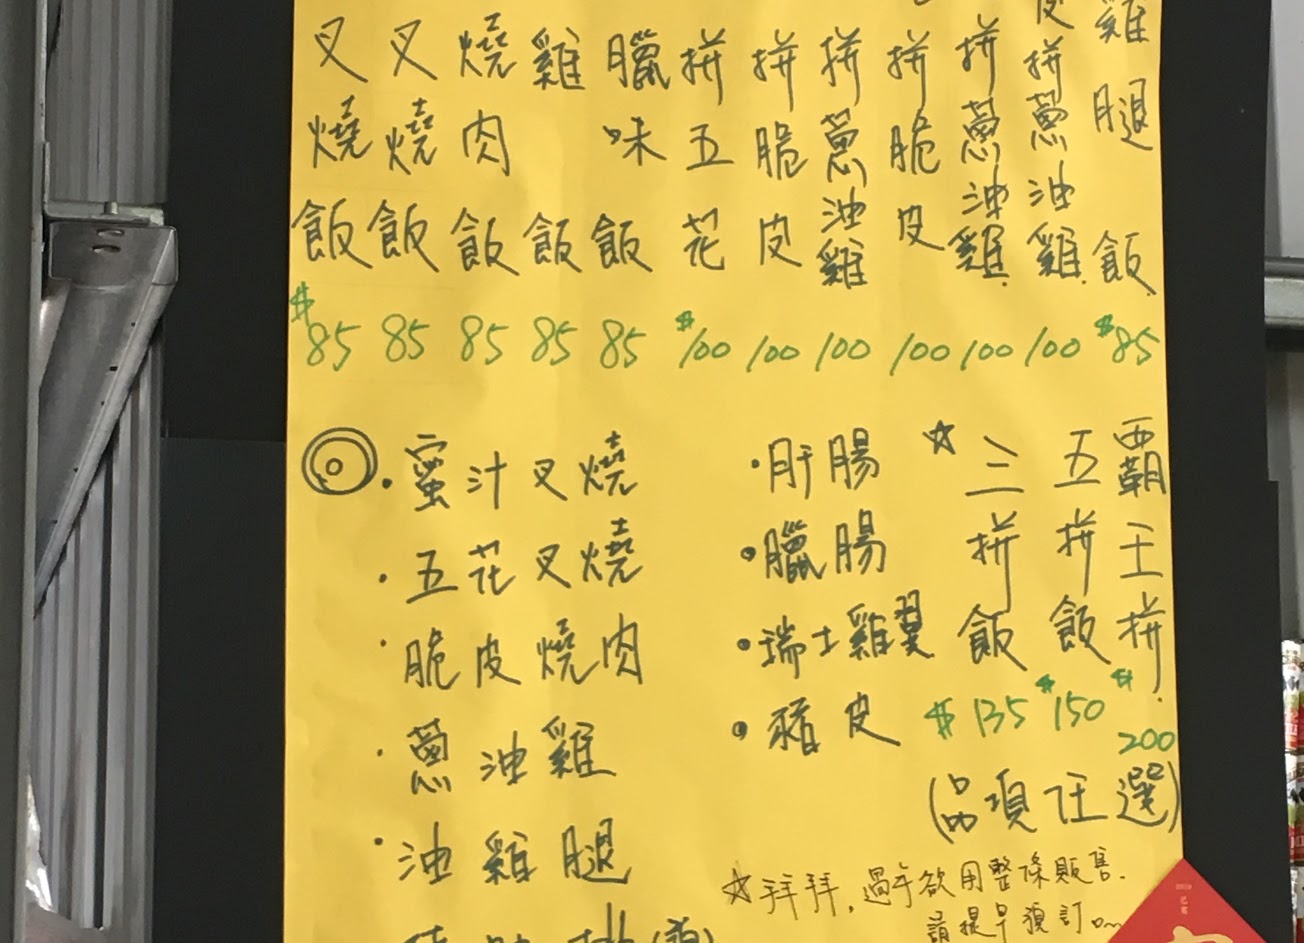 叉燒飯
$85
叉燒飯
85
燒肉飯
85
雞飯
85
臘味飯
85
拼五花
$100
拼脆皮
100
拼蔥油雞
100
拼脆皮
100
拼蔥油雞
100
皮拼蔥油雞
100
雞腿飯
$85
蜜汁叉燒
五花叉燒
脆皮燒肉
蔥油雞
油雞腿
肝腸
臘腸
瑞士雞翼
豬皮
三拼飯
$135
五拼飯
$150
霸王拼
$200
(品項任選)
拜拜,過年欲用整條販售.
請提早預訂。